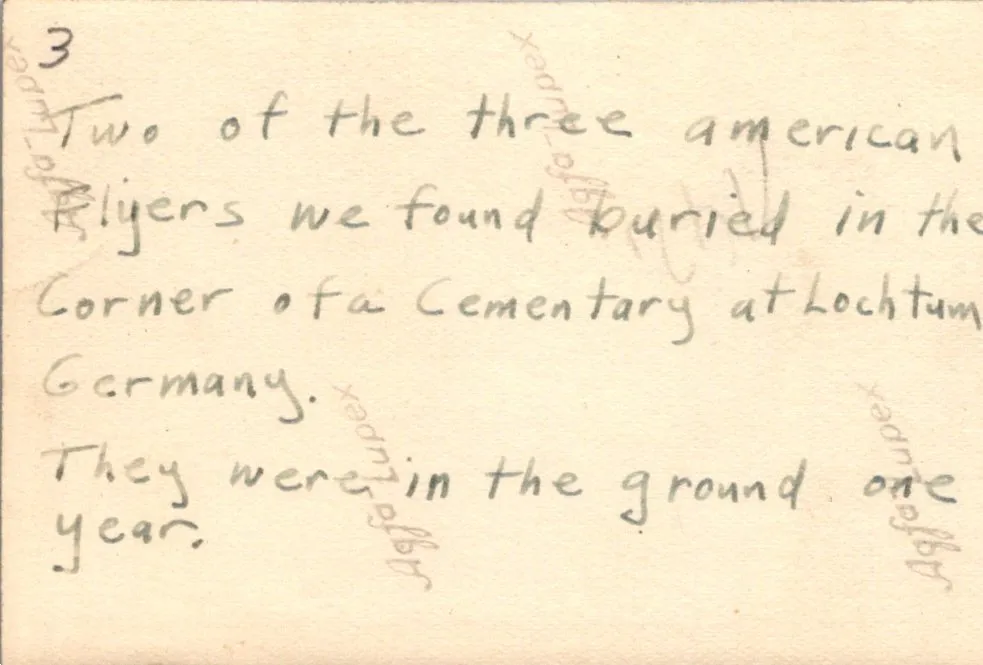 3
Two of the three american
Flyers we found buried in the
Corner of a Cementary at Lochtum
Germany.
They were in the ground one
year.
Agfa-Lupex
Agfa-Lupex
Agfa-Lupex
Agfa-Lupex